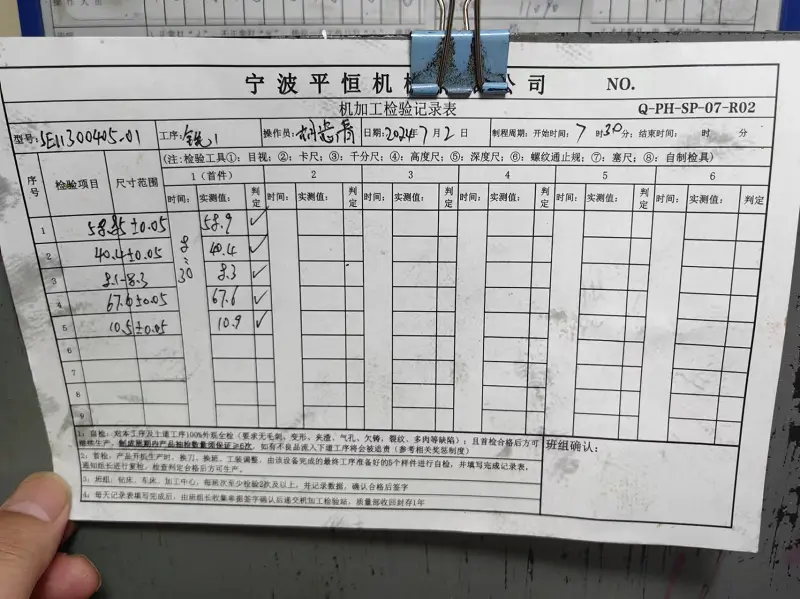 宁波平恒机 公司 NO.
机加工检验记录表 Q-PH-SP-07-R02
型号: SE11300405-01 工序: 铣1 操作员: 日期: 2024年7月2日 制程周期: 开始时间: 7时30分; 结束时间: 时 分
(注: 检验工具①: 目视; ②: 卡尺; ③: 千分尺; ④: 高度尺; ⑤: 深度尺; ⑥: 螺纹通止规; ⑦: 塞尺; ⑧: 自制检具)
序号 检验项目 尺寸范围 1 (首件) 2 3 4 5 6
时间: 实测值: 判定 时间: 实测值: 判定 时间: 实测值: 判定 时间: 实测值: 判定 时间: 实测值: 判定 时间: 实测值: 判定
1 58.85±0.05 8:30 58.9 ✓
2 40.4±0.05 40.4 ✓
3 8.1-8.3 8.3 ✓
4 67.6±0.05 67.6 ✓
5 10.5±0.05 10.9 ✓
6
7
8
9
1, 自检: 对本工序及上道工序100%外观全检 (要求无毛刺, 变形, 夹渣, 气孔, 欠铸, 裂纹, 多肉等缺陷); 且首检合格后方可
继续生产, 制成周期内产品抽检数量须保证≥6次, 如有不良品流入下道工序将会被追责 (参考相关奖惩制度)
班组确认:
2, 首检: 产品开机生产时, 换刀, 换班, 工装调整, 由该设备完成的最终工序准备好的5个样件进行自检, 并填写完成记录表,
通知组长进行复检, 检查判定合格后方可生产。
3, 班组: 钻床, 车床, 加工中心, 每班次至少检验2次及以上, 并记录数据, 确认合格后签字
4, 每天记录表填写完成后, 由班组长收集审核签字确认后递交机加工检验站, 质量部收回封存1年